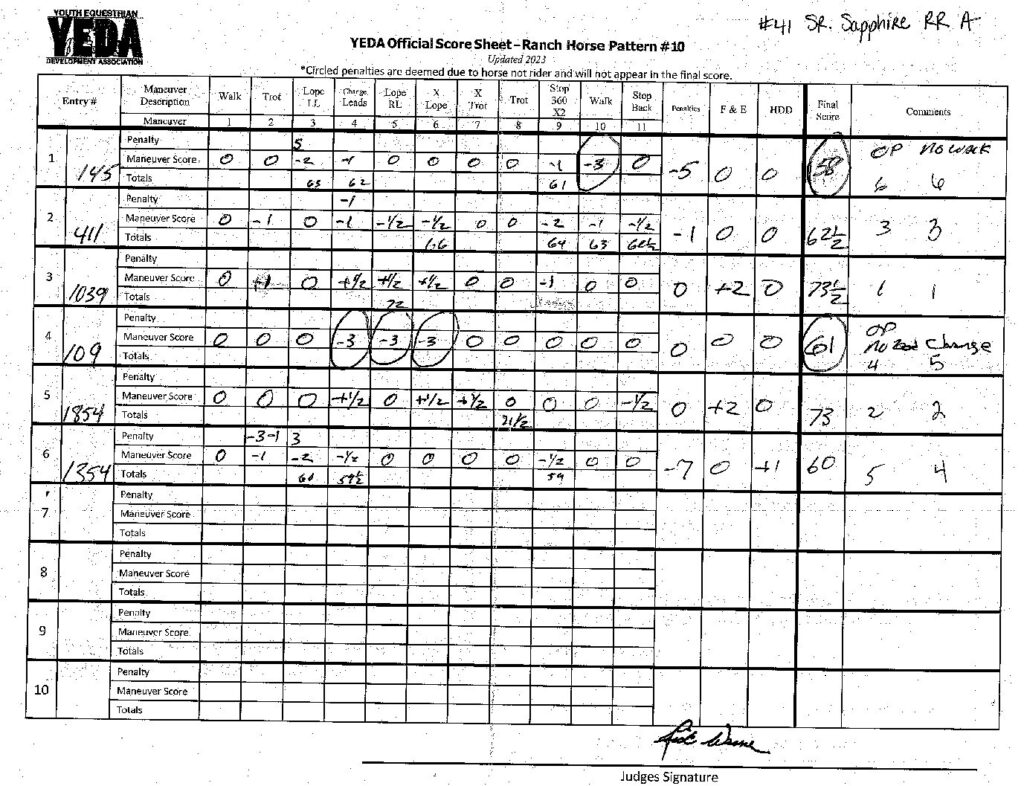 YOUTH EQUESTRIAN
YEDA
DEVELOPMENT ASSOCIATION
#41 SR. Sapphire RR A
YEDA Official Score Sheet – Ranch Horse Pattern #10
Updated 2023
*Circled penalties are deemed due to horse not rider and will not appear in the final score.
Entry # Maneuver Description Walk Trot Lope LL Change Leads Lope RL X Lope X Trot Trot Stop 360 X2 Walk Stop Back Penalties F & E HDD Final Score Comments
Maneuver 1 2 3 4 5 6 7 8 9 10 11
1 145
Penalty 5
Maneuver Score 0 0 -2 -1 0 0 0 0 -1 -3 0 -5 0 0 58 OP no walk
Totals 63 62 61 6 6
2 411
Penalty -1
Maneuver Score 0 -1 0 -1 -1/2 -1/2 0 0 -2 -1 -1/2 -1 0 0 62 1/2 3 3
Totals 66 64 63 62 1/2
3 1039
Penalty
Maneuver Score 0 +1 0 +1/2 +1/2 +1/2 0 0 -1 0 0 0 +2 0 73 1/2 1 1
Totals 72
4 109
Penalty
Maneuver Score 0 0 0 -3 -3 -3 0 0 0 0 0 0 0 0 61 OP no lead Change
Totals 4 5
5 1854
Penalty
Maneuver Score 0 0 0 +1/2 0 +1/2 +1/2 0 0 0 -1/2 0 +2 0 73 2 2
Totals 71/2
6 1354
Penalty -3-1 3
Maneuver Score 0 -1 -2 -1/2 0 0 0 0 -1/2 0 0 -7 0 +1 60 5 4
Totals 60 59 1/2 59
7
Penalty
Maneuver Score
Totals
8
Penalty
Maneuver Score
Totals
9
Penalty
Maneuver Score
Totals
10
Penalty
Maneuver Score
Totals
Judges Signature